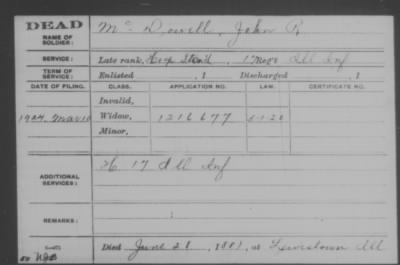 DEAD
NAME OF SOLDIER: Mc Dowell, John R.
SERVICE: Late rank, Hosp Stew'd, 17 Reg't Ill Inf
TERM OF SERVICE: Enlisted , 1 Discharged , 1
DATE OF FILING. CLASS. APPLICATION NO. LAW. CERTIFICATE NO.
Invalid,
1924 Mar 10 Widow, 1216677 5-1-20
Minor,
ADDITIONAL SERVICES: H 17 Ill Inf
REMARKS:
Died June 28, at Lewistown Ill